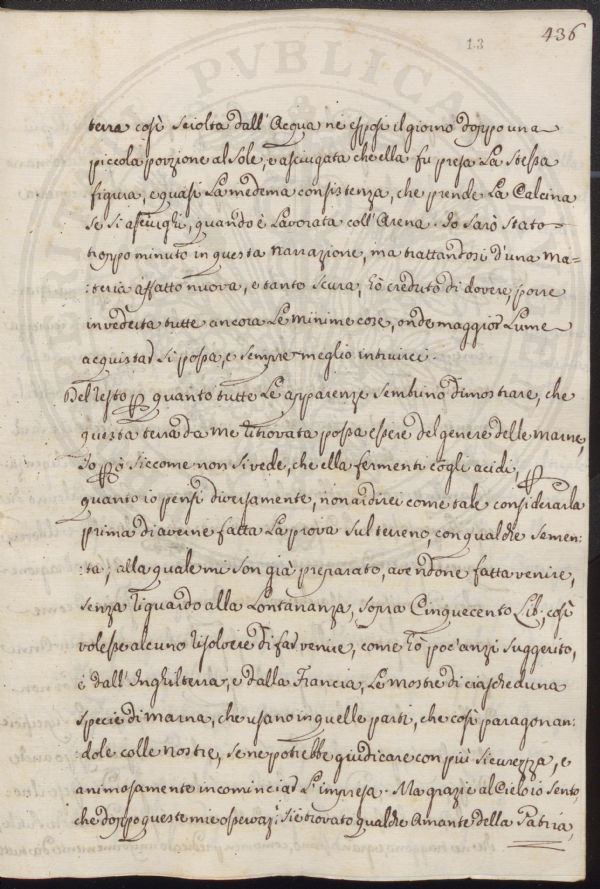 436
13
terra così sciolta dall'Acqua ne esposi il giorno doppo una
piccola porzione al Sole, e asciugata che ella fu presa La stessa
figura, e quasi La medema consistenza, che prende La Calcina
se si asciughi, quando è Lavorata coll'Arena. Io sarò stato
troppo minuto in questa narrazione, ma trattandosi d'una ma=
:teria affatto nuova, e tanto scura, hò creduto di dovere, porre
in vedcita tutte ancora Le minime cose, onde maggior Lume
acquistar si possa, e sempre meglio intruirci.
Del resto p quanto tutte Le apparenze sembrino dimostrare, che
questa terra da me ritrovata possa essere del genere delle marne,
Io però siccome non si vede, che ella fermenti cogli acidi, p
quanto io pensi diversamente, non ardirei come tale considerarla
prima di averne fatta La prova sul terreno, con qualche semen-
:ta; alla quale mi son già preparato, avendone fatta venire,
senza riguardo alla Lontananza, sopra Cinquecento Lib; così
volesse alcuno risolvere di far venire, come hò poc'anzi suggerito,
e dall'Inghilterra, e dalla Francia, Le mostre di ciascheduna
specie di marna, che usano in quelle parti, che così paragonan:
:dole colle nostre, se ne potrebbe giudicare con più sicurezza, e
animosamente incominciar L'impresa. Ma grazie al Cielo io sento,
che doppo queste mie osservazi: siè trovato qualche Amante della Patria,
PVBLICA